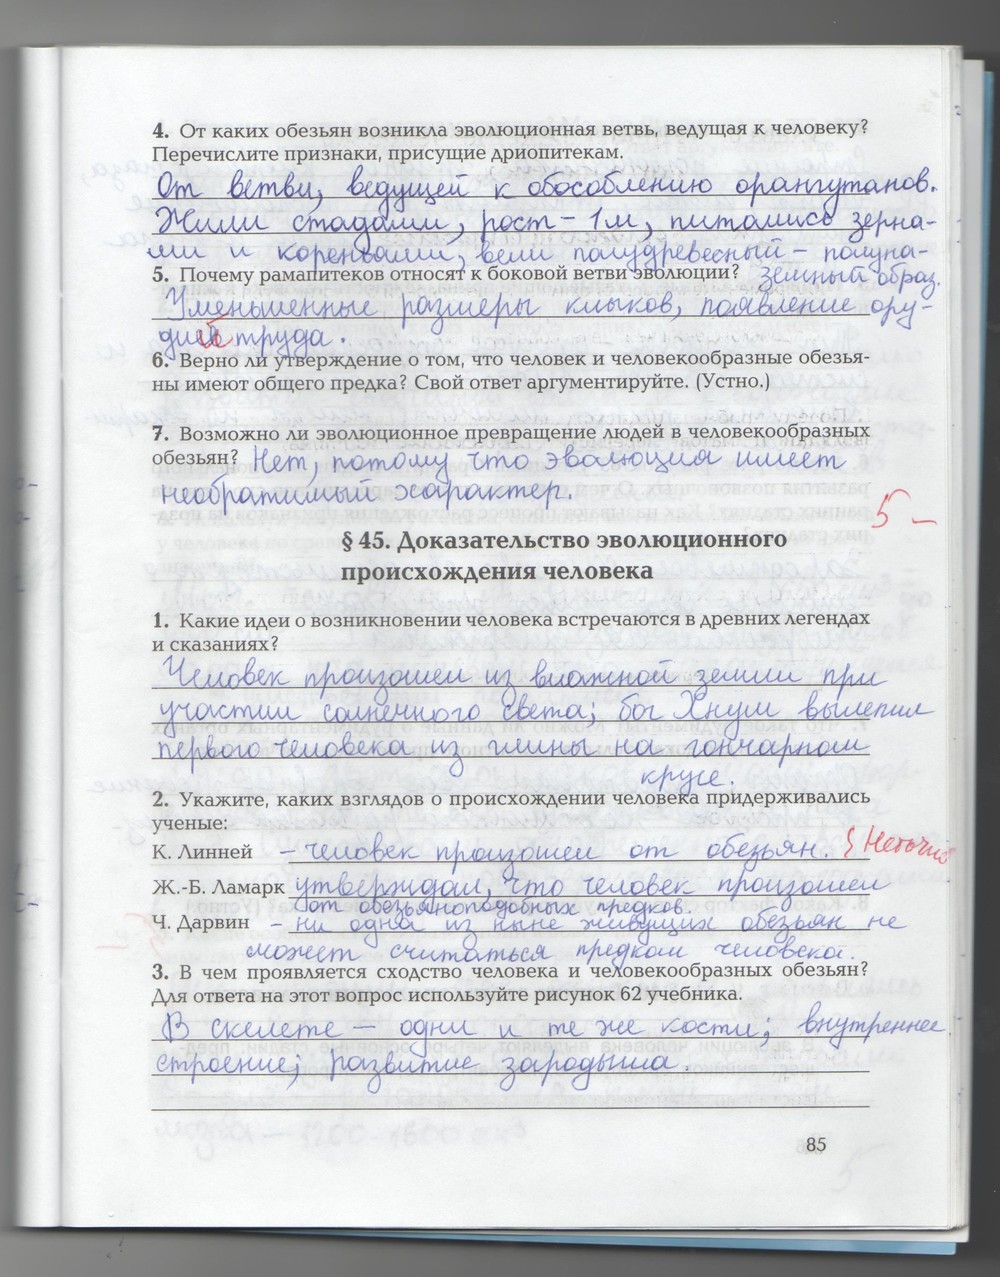 4. От каких обезьян возникла эволюционная ветвь, ведущая к человеку?
Перечислите признаки, присущие дриопитекам.
От ветви, ведущей к обособлению орангутанов.
Жили стадами, рост – 1м, питались зерна-
ми и кореньями, вели полудревесный – полуна-
земный образ.
5. Почему рамапитеков относят к боковой ветви эволюции?
Уменьшенные размеры клыков, появление ору-
дий труда.
6. Верно ли утверждение о том, что человек и человекообразные обезья-
ны имеют общего предка? Свой ответ аргументируйте. (Устно.)
7. Возможно ли эволюционное превращение людей в человекообразных
обезьян? Нет, потому что эволюция имеет
необратимый характер.
5 –
§ 45. Доказательство эволюционного
происхождения человека
1. Какие идеи о возникновении человека встречаются в древних легендах
и сказаниях?
Человек произошел из влажной земли при
участии солнечного света; бог Хнум вылепил
первого человека из глины на гончарном
круге.
2. Укажите, каких взглядов о происхождении человека придерживались
ученые:
К. Линней – человек произошел от обезьян. { Неточно
Ж.-Б. Ламарк утверждал, что человек произошел
от обезьяноподобных предков.
Ч. Дарвин – ни одна из ныне живущих обезьян не
может считаться предком человека.
3. В чем проявляется сходство человека и человекообразных обезьян?
Для ответа на этот вопрос используйте рисунок 62 учебника.
В скелете – одни и те же кости; внутреннее
строение; развитие зародыша.
85